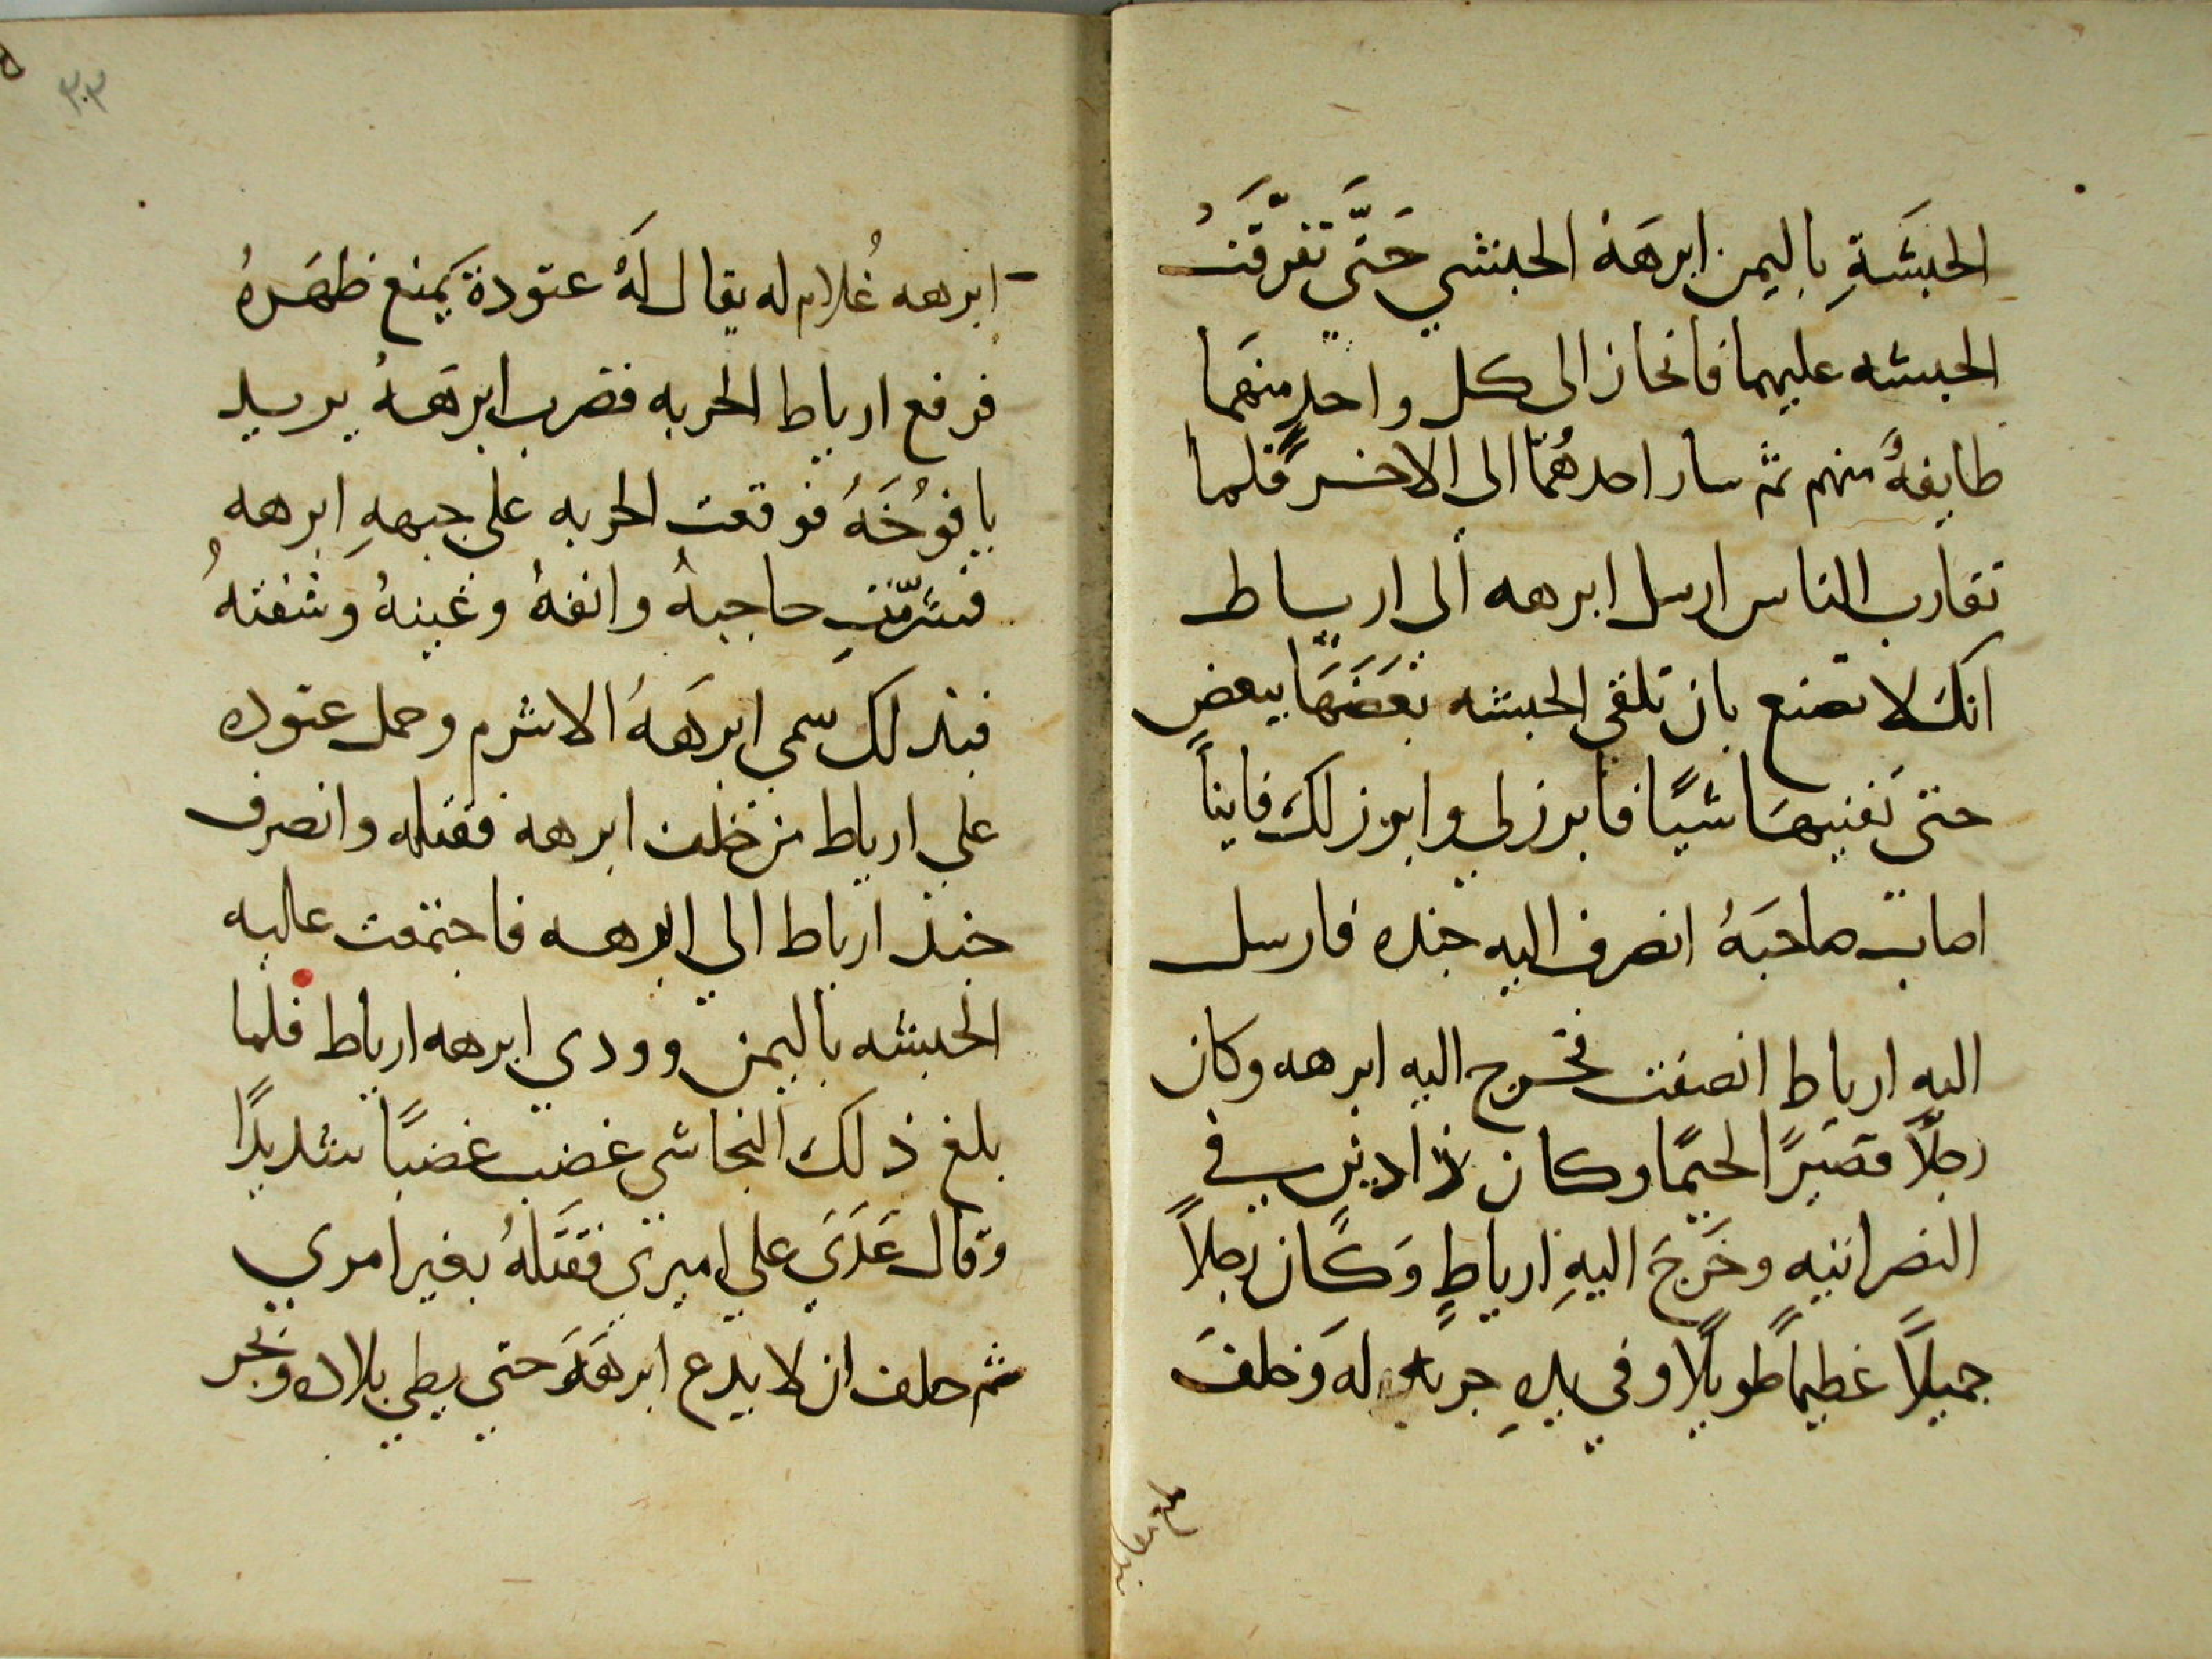 الحبشَةِ باليمن ابرهَة الحبشي حَتَّى تفرّقَتُ
الحبشه عليهما فانحاز الى كل واحدٍ منهَما
طايفةٌ منهم ثم سار احدهُمَا الى الاخر فلما
تقارب الناس ارسل ابرهه الى ارياط
انكَ لا تصنع بان تلقي الحبشه بعَضَهَا ببعضٍ
حتى تَفنيهَا شيًا فابرز لي وابرز لكَ فاينا
اصاب صاحبَهُ انصرف اليه جنده فارسل
اليه ارياط انصفت فخرج اليه ابرهه وكان
رجلًا قصَيرًا لحيمًا وكان ذا دين في
النصرانيه وخَرجَ اليهِ ارياطٍ وَكَان رجلاً
جميلًا عظيمًا طويلًا وفي يدهِ حربه له وَخلفَ
٣٠٣
ابرهه غُلام له يقال لَهُ عتودة يَمنع ظهَرهُ
فرفع ارياط الحربه فضرب ابرَهــهُ يريــد
يافوُخَهُ فوقعت الحربه على جبههِ ابرهه
فشرّمَتِ حاجبهُ وانفهُ وعَينهُ وشفتهُ
فبذلك سمي ابرَههُ الاشرم وحمل عتوده
علي ارياط من خلف ابرهه فقتله وانصرف
جند ارياط الي ابرهه فاجتمعت عليه
الحبشه باليمن وودي ابرهه ارياط فلما
بلغ ذلك النجاشي غضب غضبًا شديدًا
وَقال عَدَيَ علي اميري فقَتَلهُ بغير امري
ثم حلف ان لا يدع ابرهَهَ حتى يطي بلاده ويَجر